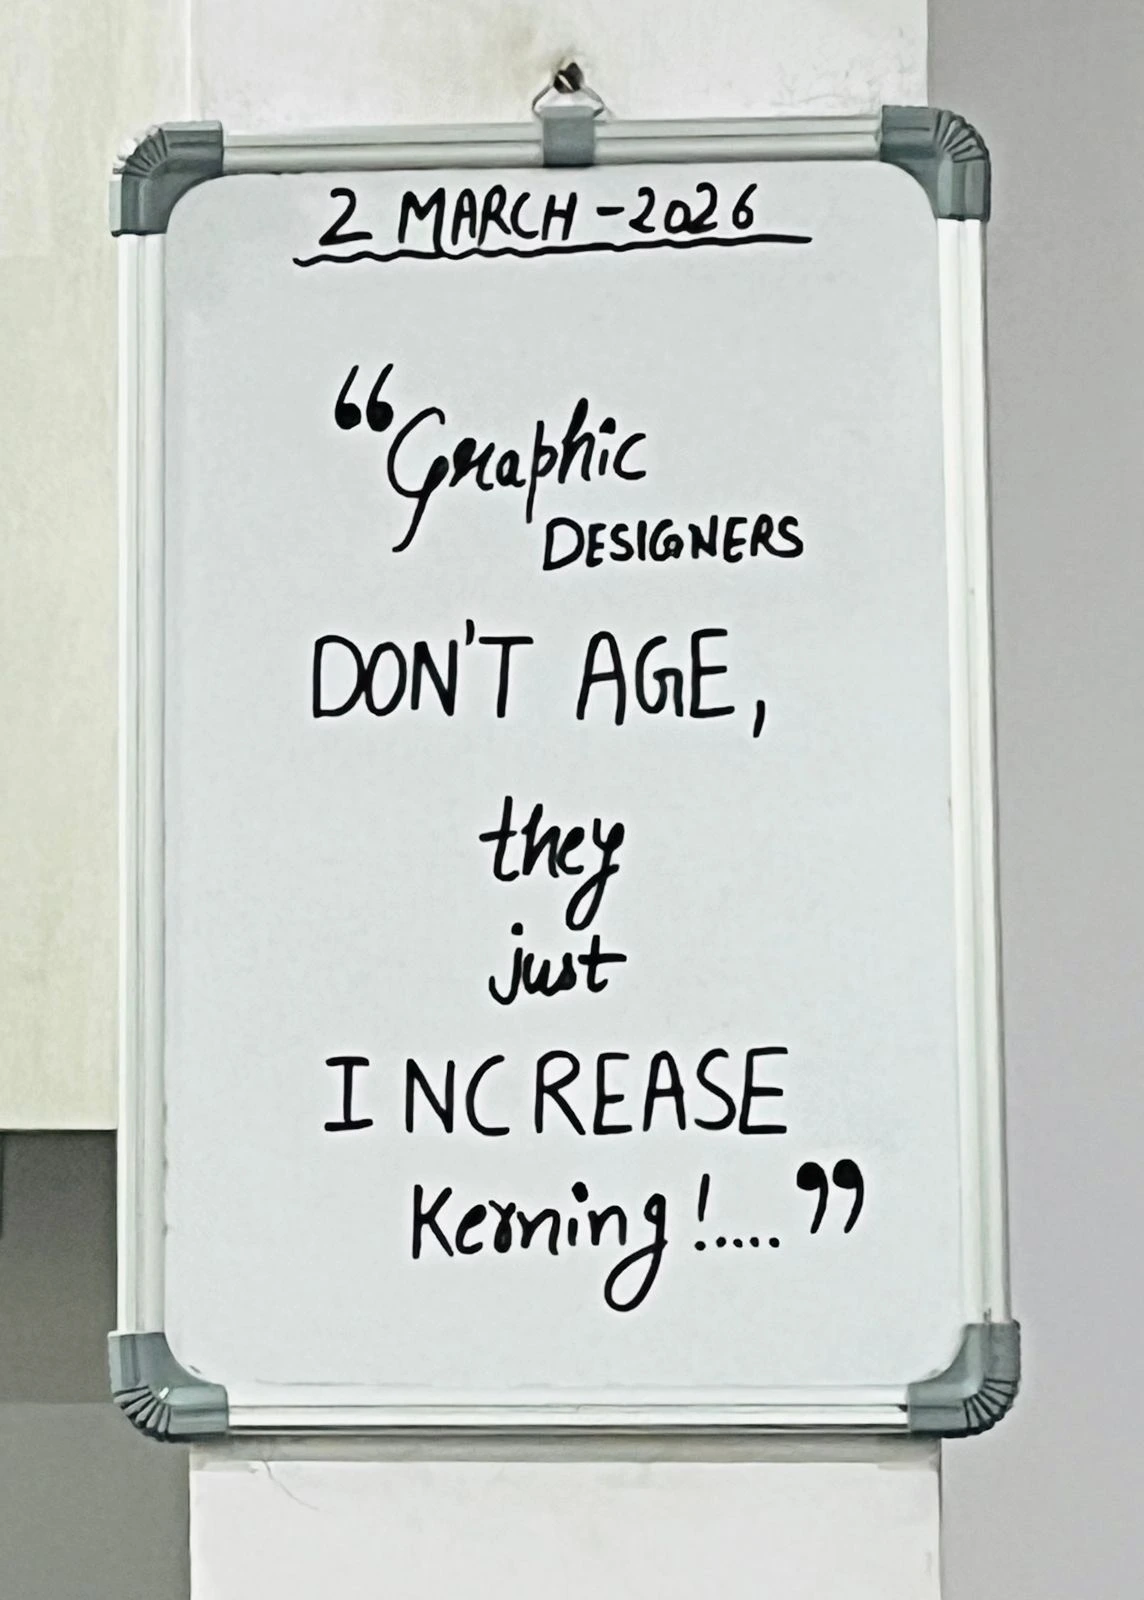 2 MARCH -2026
“Graphic
DESIGNERS
DON'T AGE,
they
just
INCREASE
Kerning!.....”